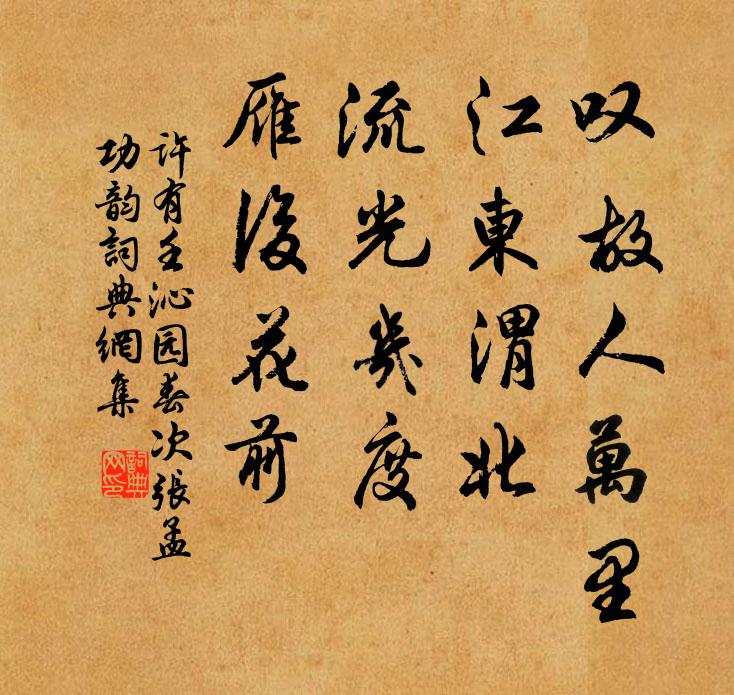 叹故人萬里
江東渭北
流光幾度
雁後花前
许有壬沁园春次張孟
功韵詞典網集
詞典网印